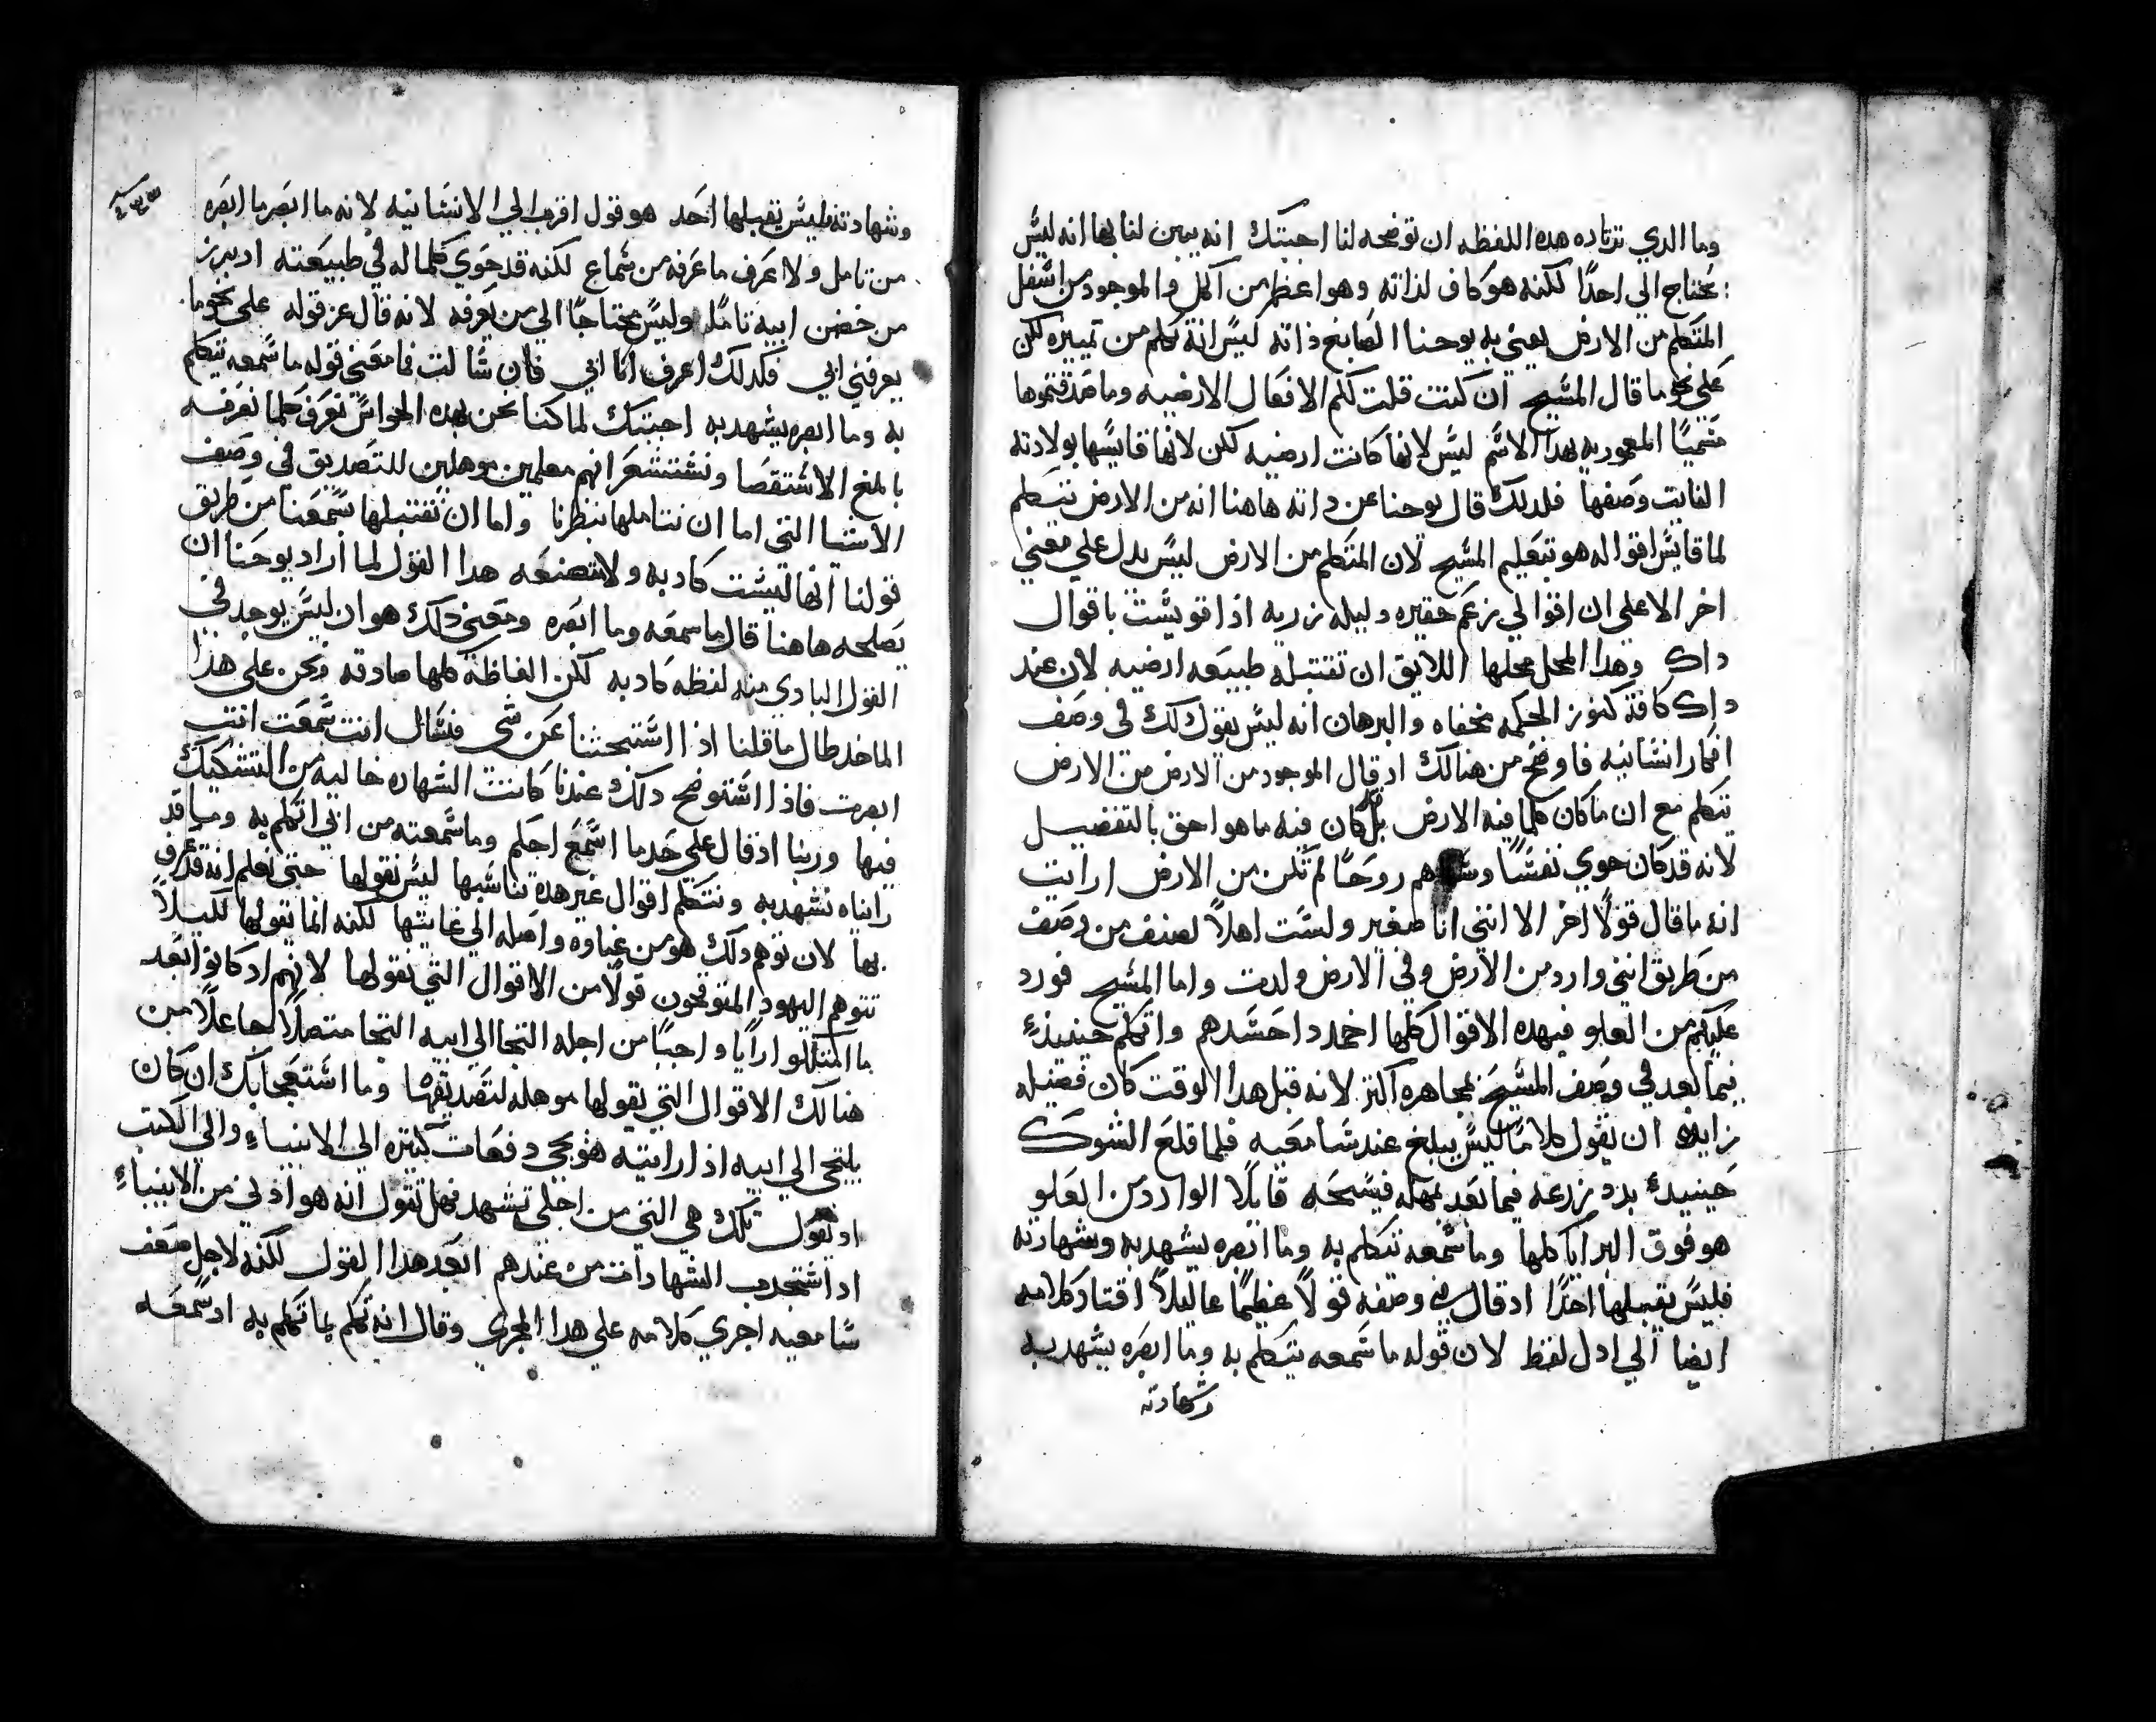 وما الدي ترتاده هده اللفظه ان توضحه لنا اجبتك انه يبين لنا بها انه ليس
يحتاج الي احدًا لكنه هو كاف لذاته وهو اعظم من الكل والموجود من اسفل
المتكلم من الارض يعني به يوحنا الصابغ ذاته ليس انه تكلم من تمييزه لكن
علي نحو ما قال المسيح ان كنت قلت لكم الافعال الارضيه وما صدقتموها
مسميًا المعموديه بهدا الاسم ليس لانها كانت ارضيه لكن لانها قايسها بولادته
الفايت وصفها فلدلك قال يوحنا عن داته هاهنا انه من الارض نتكلم
لما قايس اقواله هو بتعليم المسيح لان المتكلم من الارض ليس يدل علي معني
اخر الا علي ان اقوالي بزعم حقيره دليله زريه اذا قويست باقوال
داك وهدا المحل محلها اللايق ان تقتبله طبيعه ارضيه لان عند
داك كافة كنوز الحكمه مخفاه والبرهان انه ليس يقول لك في وصف
افكار انسانيه فاوضح من هنالك اد قال الموجود من الارض من الارض
يتكلم مع ان ما كان كلما فيه الارض بل كان فيه ما هو احق بالتفضيل
لانه قد كان حوي نفسًا روحًا لم تكن من الارض ارايت
انه ما قال قولًا اخر الا انني انا صغير ولست اهلًا لصنف من وصف
من طريق انني وارد من الارض وفي الارض ولدت واما المسيح فورد
عليكم من العلو فبهده الاقوال كلها اخمد داحسدهم واتكلم حينيذٍ
فيما بعد في وصف المسيح بمجاهره اكتر لانه قبل هدا الوقت كان فضيله
زايده ان يقول كلامًا ليس يبلغ عند سامعيه فلما قلع الشوك
حينيدٍ بدد زرعه فيما بعد بمهله فيسحه قايلًا الوارد من العلو
هو فوق البرايا كلها وما سمعه نتكلم به وما ابصره يشهد به وشهادته
فليس يقبلها احدًا اد قال في وصفه قولًا عظيمًا عاليًا اقتاد كلامه
ايضا الي ادل لفظ لان قوله ما سمعه يتكلم به وما ابصره يشهد به
وشهادته
وشهادته ليس يقبلها احد هو قول اقرب الي الانسانيه لانه ما ابصر ما ابصره
من تامل ولا عرف ما عرفه من سماع لكنه قد حوي كلما له في طبيعته اد برز
من حضن ابيه تامًا وليس محتاجًا الي من يعرفه لانه قال عز قوله علي نحو ما
يعرفني ابي فكدلك اعرف انا ابي فان سالت فما معني قوله ما سمعه يتكلم
به وما ابصره يشهد به اجبتك لما كنا نحن بهده الحواس نعرف كلما نعرفه
بالمغ الاستقصا ونستشعر انهم معلمين موهلين للتصديق في وصف
الاشيا التي اما ان نتاملها بنظرنا واما ان نقتبلها بسمعنا من طريق
قولنا انها ليست كادبه ولا متصنعه هدا القول لما اراد يوحنا ان
يصلحه هاهنا قال ما سمعه وما ابصره ومعني دلك هو ان ليس يوجد في
القول البادي منه لفظه كادبه لكن الفاظه كلها صادقه نحن علي هدا
الماخد طال ما قلنا اذا استبحثنا عن شي فنسال انت سمعت انت
ابصرت فاذا استوضح دلك عندنا كانت الشهاده خاليه من التشكيك
فيها وربنا اذ قال علي حد ما اسمع احكم وما سمعته من ابي اتكلم به وما قد
رايناه نشهد به ونتكلم اقوال غير هده تناسبها ليس نقولها حتي نعلم انه قد عرف
بها لان توهم دلك هو من غباوه واصله الي غايتها لكنه انما تقولها لكيلًا
تتوهم اليهود المتوقحون قولًا من الاقوال التي نقولها لانهم اد كانوا بعد
ما امتلكوا رايًا واجبًا من اجله التجا الي ابيه التجا متصلًا جاعلًا من
هنالك الاقوال التي يقولها موهله لتصديقها وما استعجابك ان كان
يلتجي الي ابيه اذا رايته هو يجي دفعات كتيره الي الانبياءِ والي الكتب
اد يقول تلك هي التي من اجلي تشهد فهل تقول انه هو اذلي من الانبياءِ
اد استجدب الشهادات من عندهم ابعد هدا القول لكنه لاجل ضعف
سامعيه اجري كلامه علي هدا المجري وقال انه تكلم بما تكلم به اد سمعه